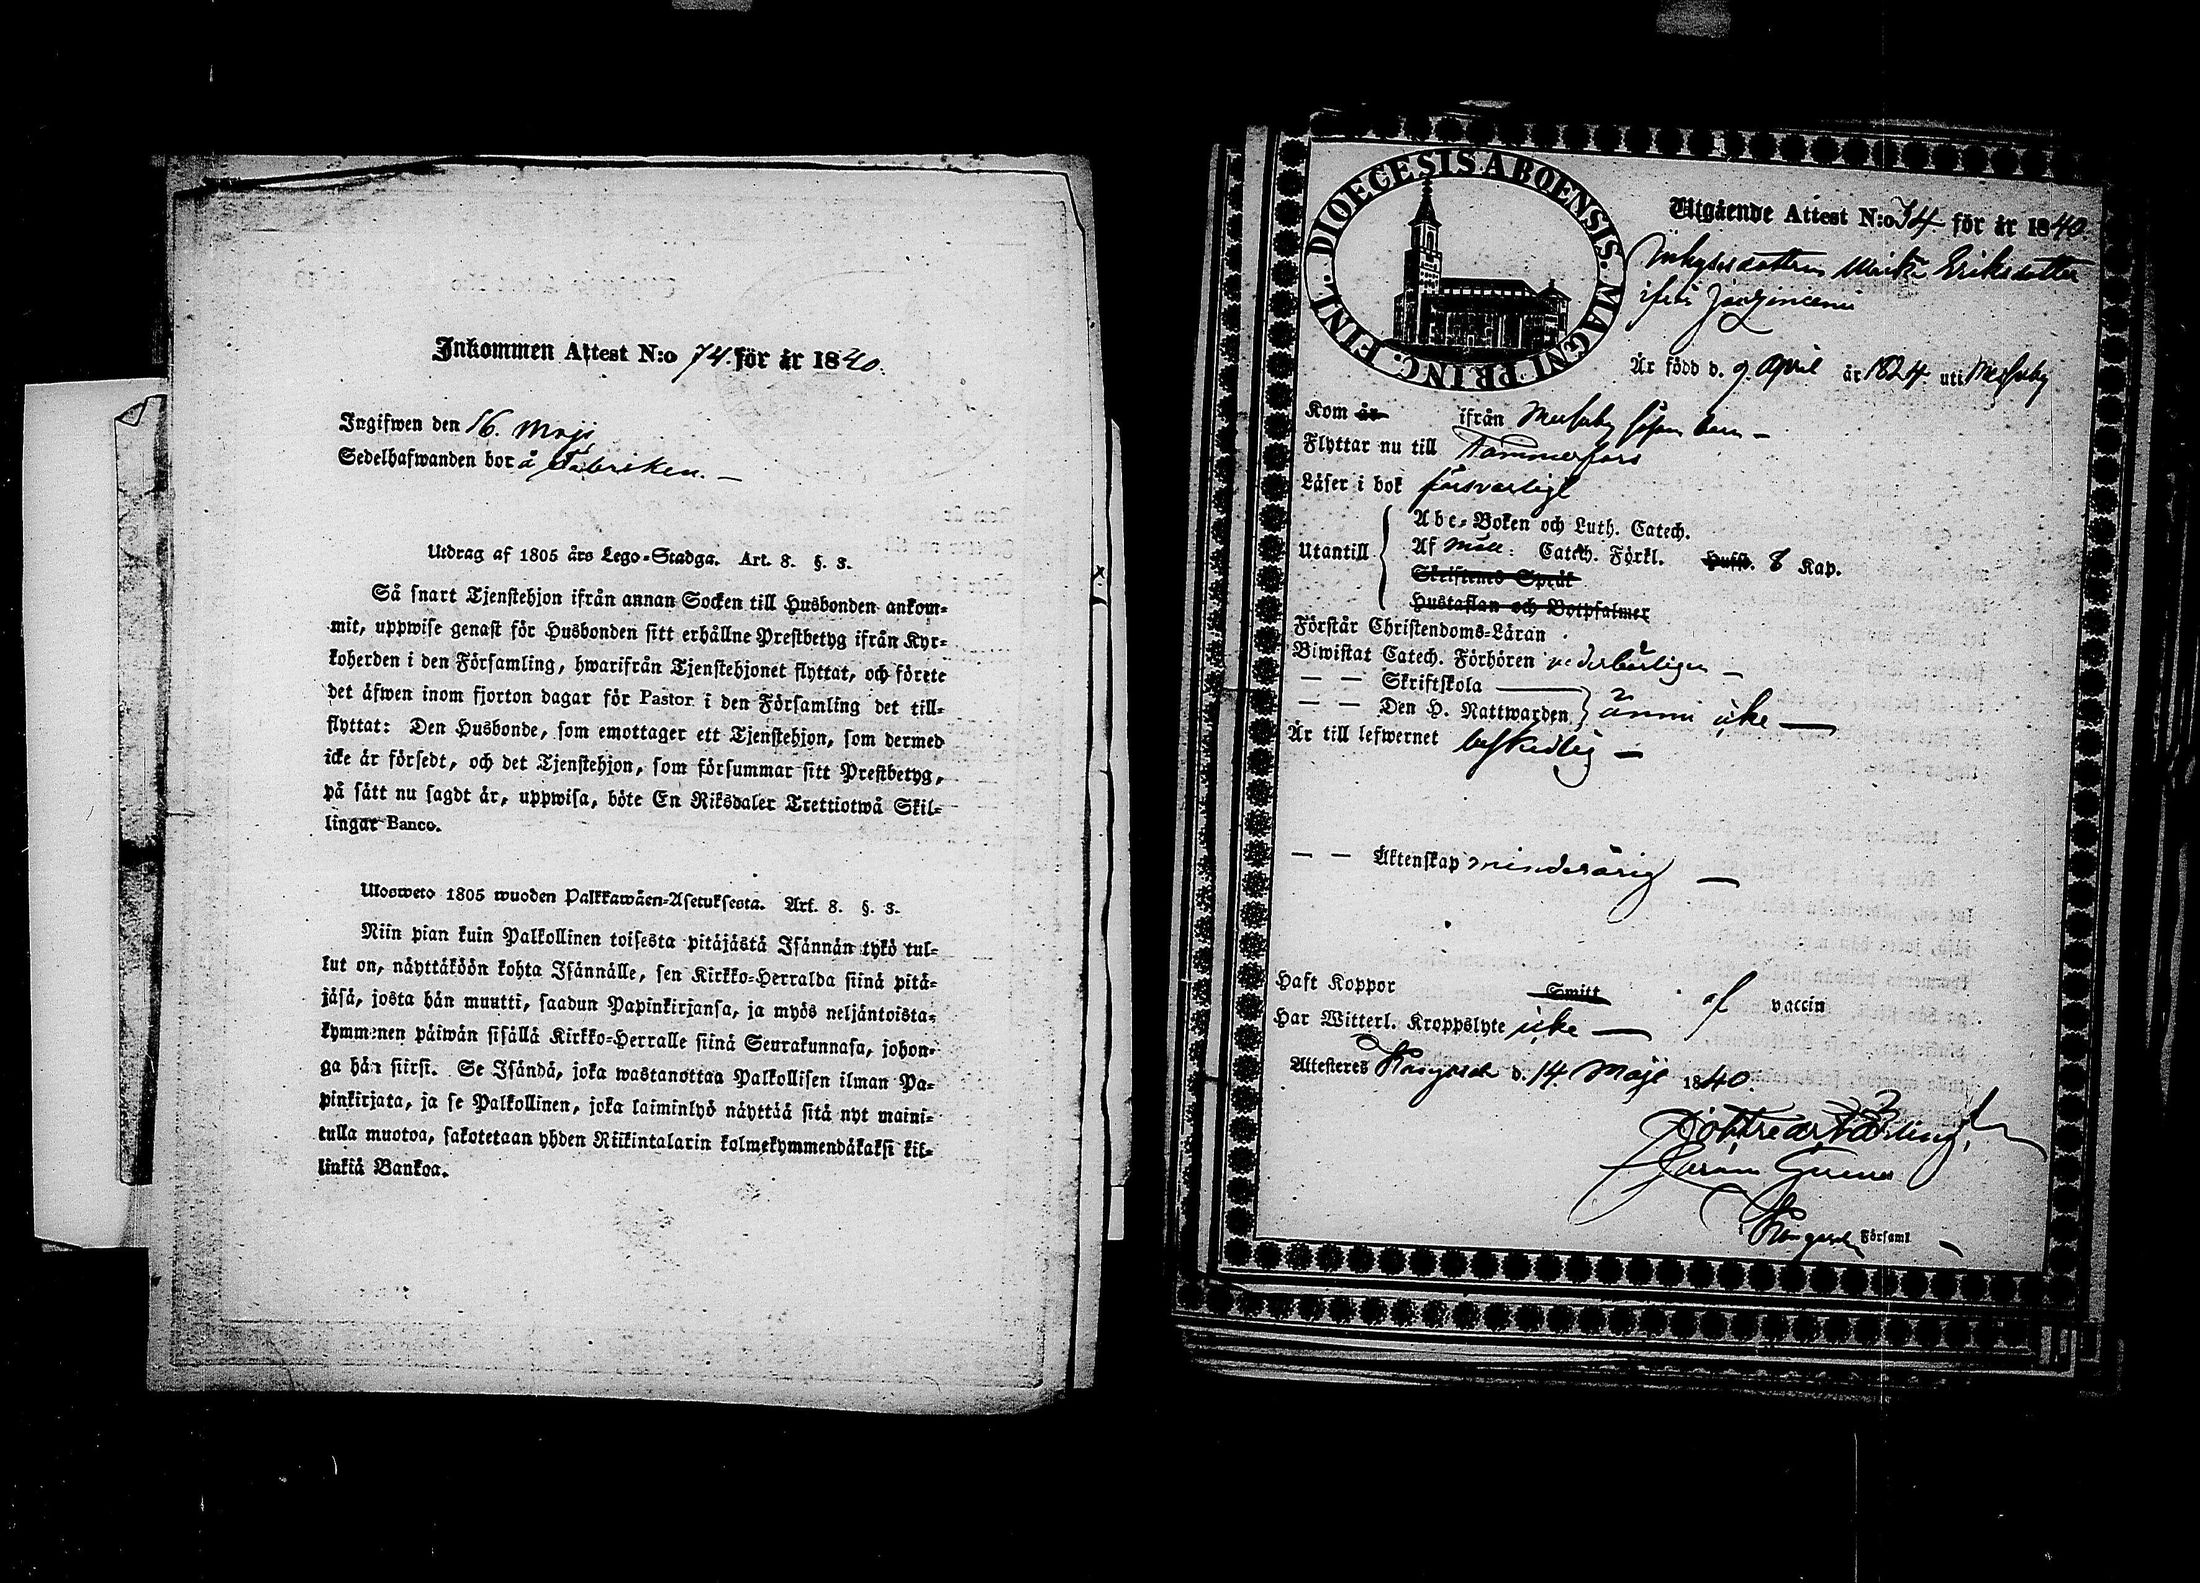 Inkommen Attest N:o 74. för år 1840.
Ingifwen den 16. Maji
Sedelhafwanden bor å Fabriken. —
Utdrag af 1805 års Lego-Stadga. Art. 8. §. 3.
Så snart Tjenstehjon ifrån annan Socken till Husbonden ankom-
mit, uppwise genast för Husbonden sitt erhållne Prestbetyg ifrån Kyr-
koherden i den Församling, hwarifrån Tjenstehjonet flyttat, och förete
det äfwen inom fjorton dagar för Pastor i den Församling det till-
flyttat: Den Husbonde, som emottager ett Tjenstehjon, som dermed
icke är försedt, och det Tjenstehjon, som försummar sitt Prestbetyg,
på sätt nu sagdt är, uppwisa, böte En Riksdaler Trettiotwå Skil-
lingar Banco.
Ulosweto 1805 wuoden Palkkawäen-Asetuksesta. Art. 8. §. 3.
Niin pian kuin Palkollinen toisesta pitäjästä Isännän tykö tul-
lut on, näyttäköön kohta Isännälle, sen Kirkko-Herralda siinä pitä-
jäsä, josta hän muutti, saadun Papinkirjansa, ja myös neljäntoista-
kymmenen päiwän sisällä Kirkko-Herralle siinä Seurakunnasa, johon-
ga hän siirsi. Se Isändä, joka wastanottaa Palkollisen ilman Pa-
pinkirjata, ja se Palkollinen, joka laiminlyö näyttää sitä nyt maini-
tulla muotoa, sakotetaan yhden Riikintalarin kolmekymmendäkaksi kil-
linkiä Bankoa.
DIOECESIS ABOENSIS. MAGNI PRINC. FINL.
Utgående Attest N:o 34 för år 1840.
Inhysesdottren Eriksdotter
ifrån
Är född d. 9 April år 1824. uti Messuby
Kom år ifrån Messuby
Flyttar nu till Tammerfors
Läser i bok försvarligt
Utantill
Abc-Boken och Luth. Catech.
Af Catech. Förkl. Hufst. 8 Kap.
Skriftens Språk
Hustaflan och Botpsalmer
Förstår Christendoms-Läran
Biwistat Catech. Förhören vederbörligen —
— — Skriftskola
— — Den H. Nattwarden } ännu icke —
Är till lefwernet beskedlig —
— — Äktenskap minderårig —
Haft Koppor Smitt af vaccin
Har Witterl. Kroppslyte icke —
Attesteras Kangasala d. 14. Maji 1840.
Kangasala Församl.